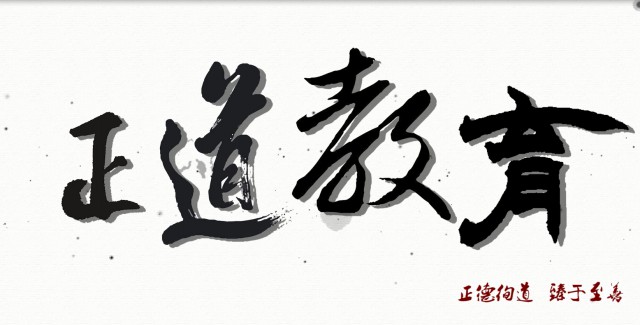 正道教育
正德徇道 臻于至善